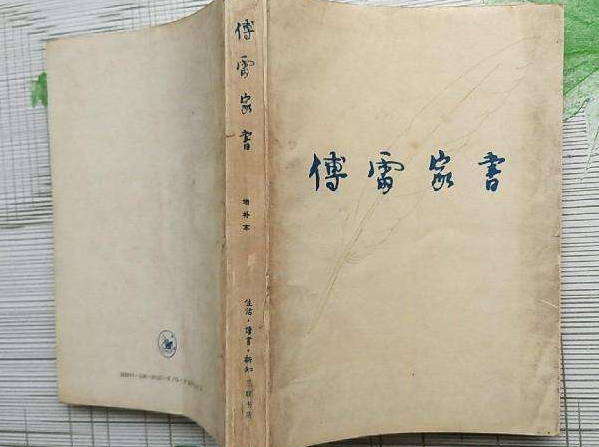 傅雷家書
增补本
生活·讀書·新知三联书店
傅雷家書